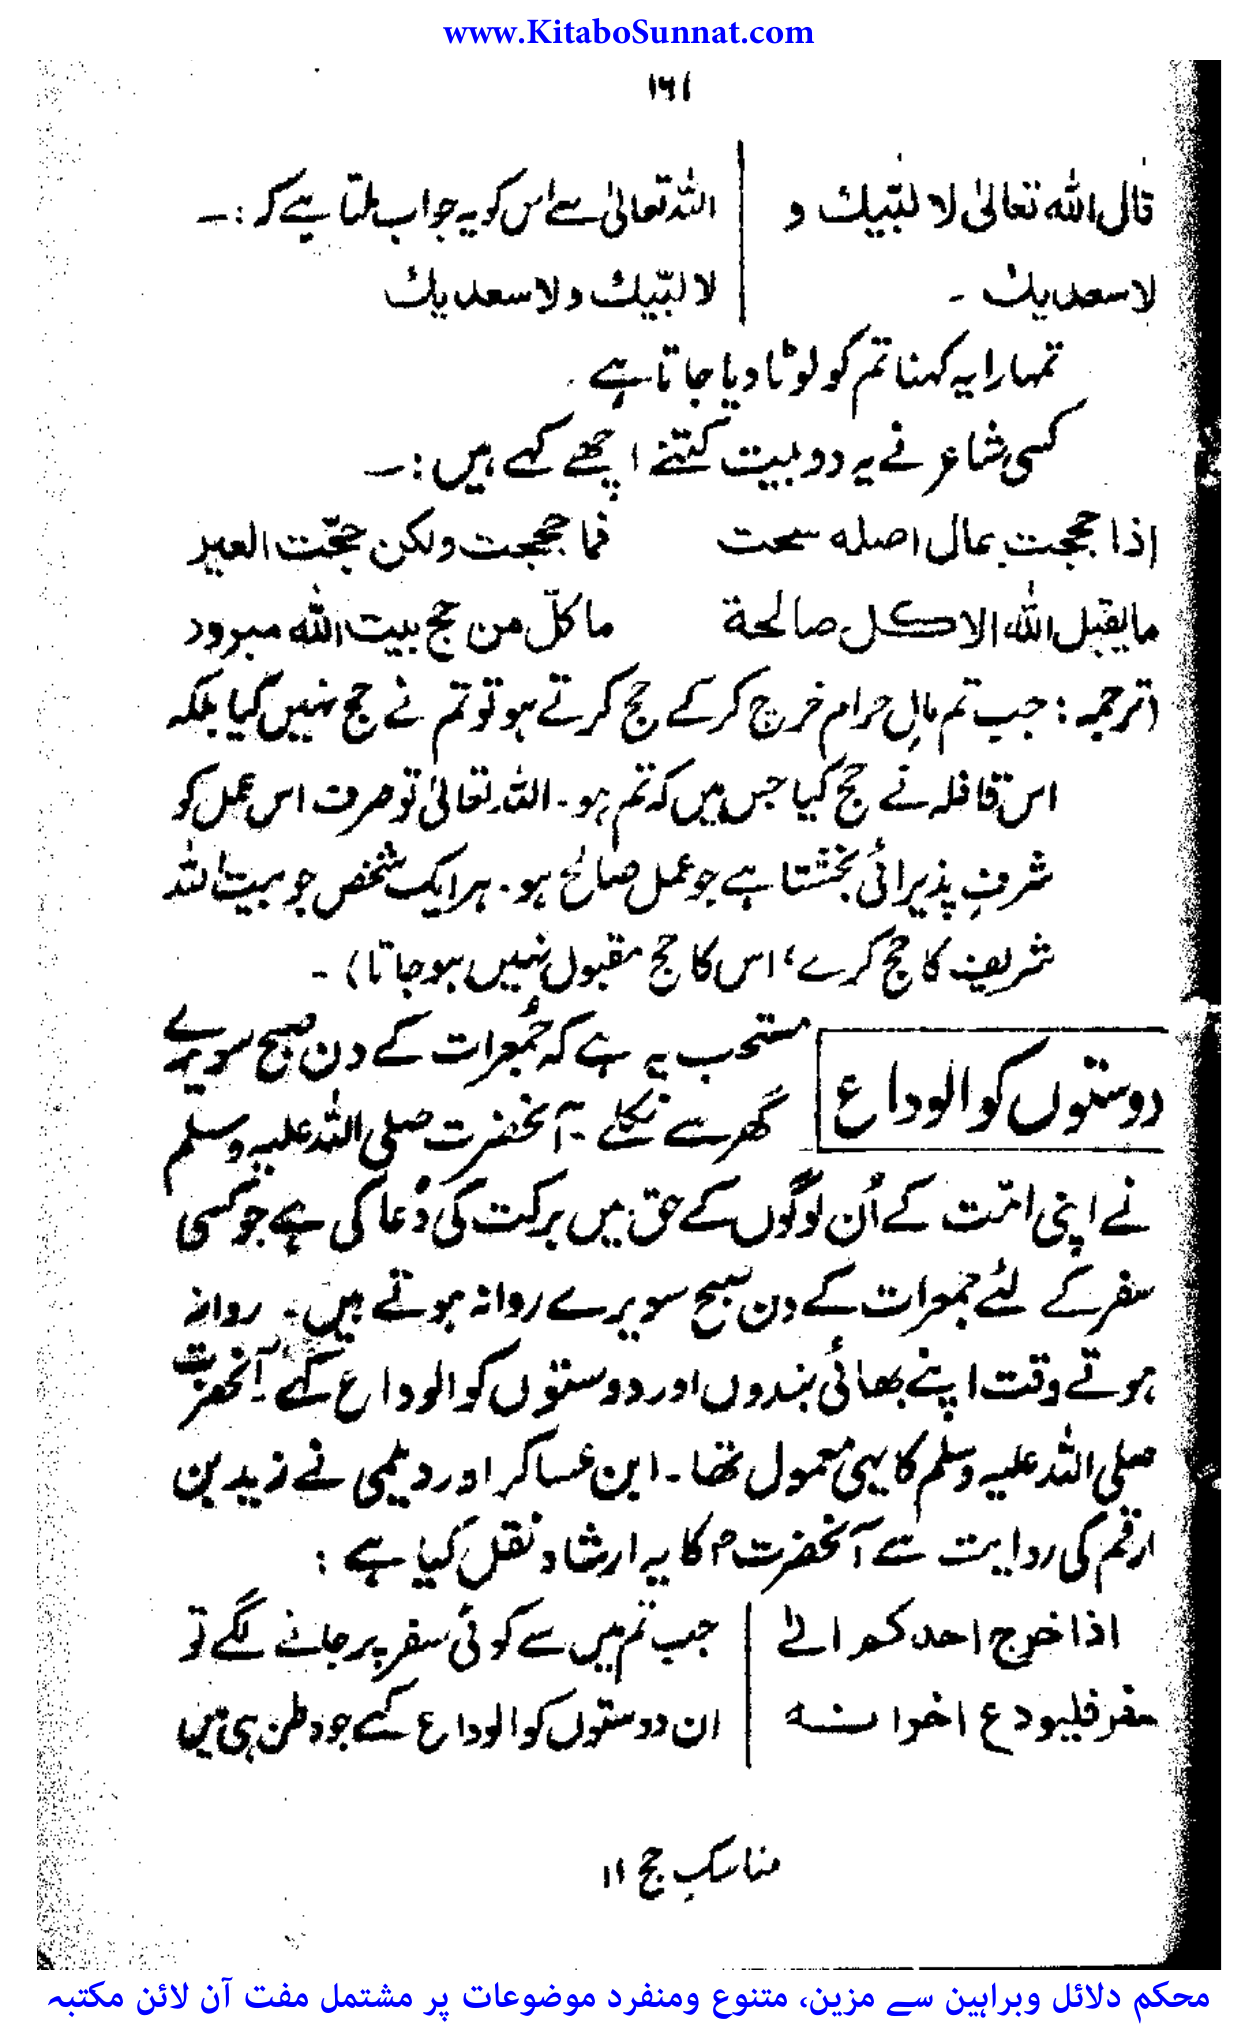 www.KitaboSunnat.com
۱۶۱
قال الله تعالیٰ لا لبّيك و
لا سعديك -
اللہ تعالیٰ سے اُس کو یہ جواب ملتا ہے کہ :—
لا لبّيك ولا سعديك
تمہارا یہ کہنا تم کو لوٹا دیا جاتا ہے .
کسی شاعر نے یہ دو بیت کتنے اچھے کہے ہیں :—
اذا حججت بمال اصله سحت فما حججت ولكن حجّت العير
ما يقبل الله الا كل صالحة ما كلّ من حج بيت الله مبرور
(ترجمہ : جب تم مالِ حرام خرچ کر کے حج کرتے ہو تو تم نے حج نہیں کیا بلکہ
اس قافلہ نے حج کیا جس میں کہ تم ہو - اللہ تعالیٰ تو صرف اس عمل کو
شرفِ پذیرائی بخشتا ہے جو عمل صالح ہو . ہر ایک شخص جو بیت اللہ
شریف کا حج کرے، اس کا حج مقبول نہیں ہو جاتا) -
دوستوں کو الوداع
مستحب یہ ہے کہ جُمعرات کے دن صبح سویرے
گھر سے نکلے - آنحضرت صلی اللہ علیہ وسلم
نے اپنی امّت کے اُن لوگوں کے حق میں برکت کی دُعا کی ہے جو کسی
سفر کے لئے جمعرات کے دن صبح سویرے روانہ ہوتے ہیں - روانہ
ہوتے وقت اپنے بھائی بندوں اور دوستوں کو الوداع کہے - آنحضرت
صلی اللہ علیہ وسلم کا یہی معمول تھا - ابن عساکر اور دیلمی نے زید بن
ارقم کی روایت سے آنحضرت ؐ کا یہ ارشاد نقل کیا ہے :
اذا خرج احدكم الى
سفر فليودع اخوانه
جب تم میں سے کوئی سفر پر جانے لگے تو
ان دوستوں کو الوداع کہے جو وطن ہی میں
مناسکِ حج ۱۱
محکم دلائل وبراہین سے مزین، متنوع ومنفرد موضوعات پر مشتمل مفت آن لائن مکتبہ